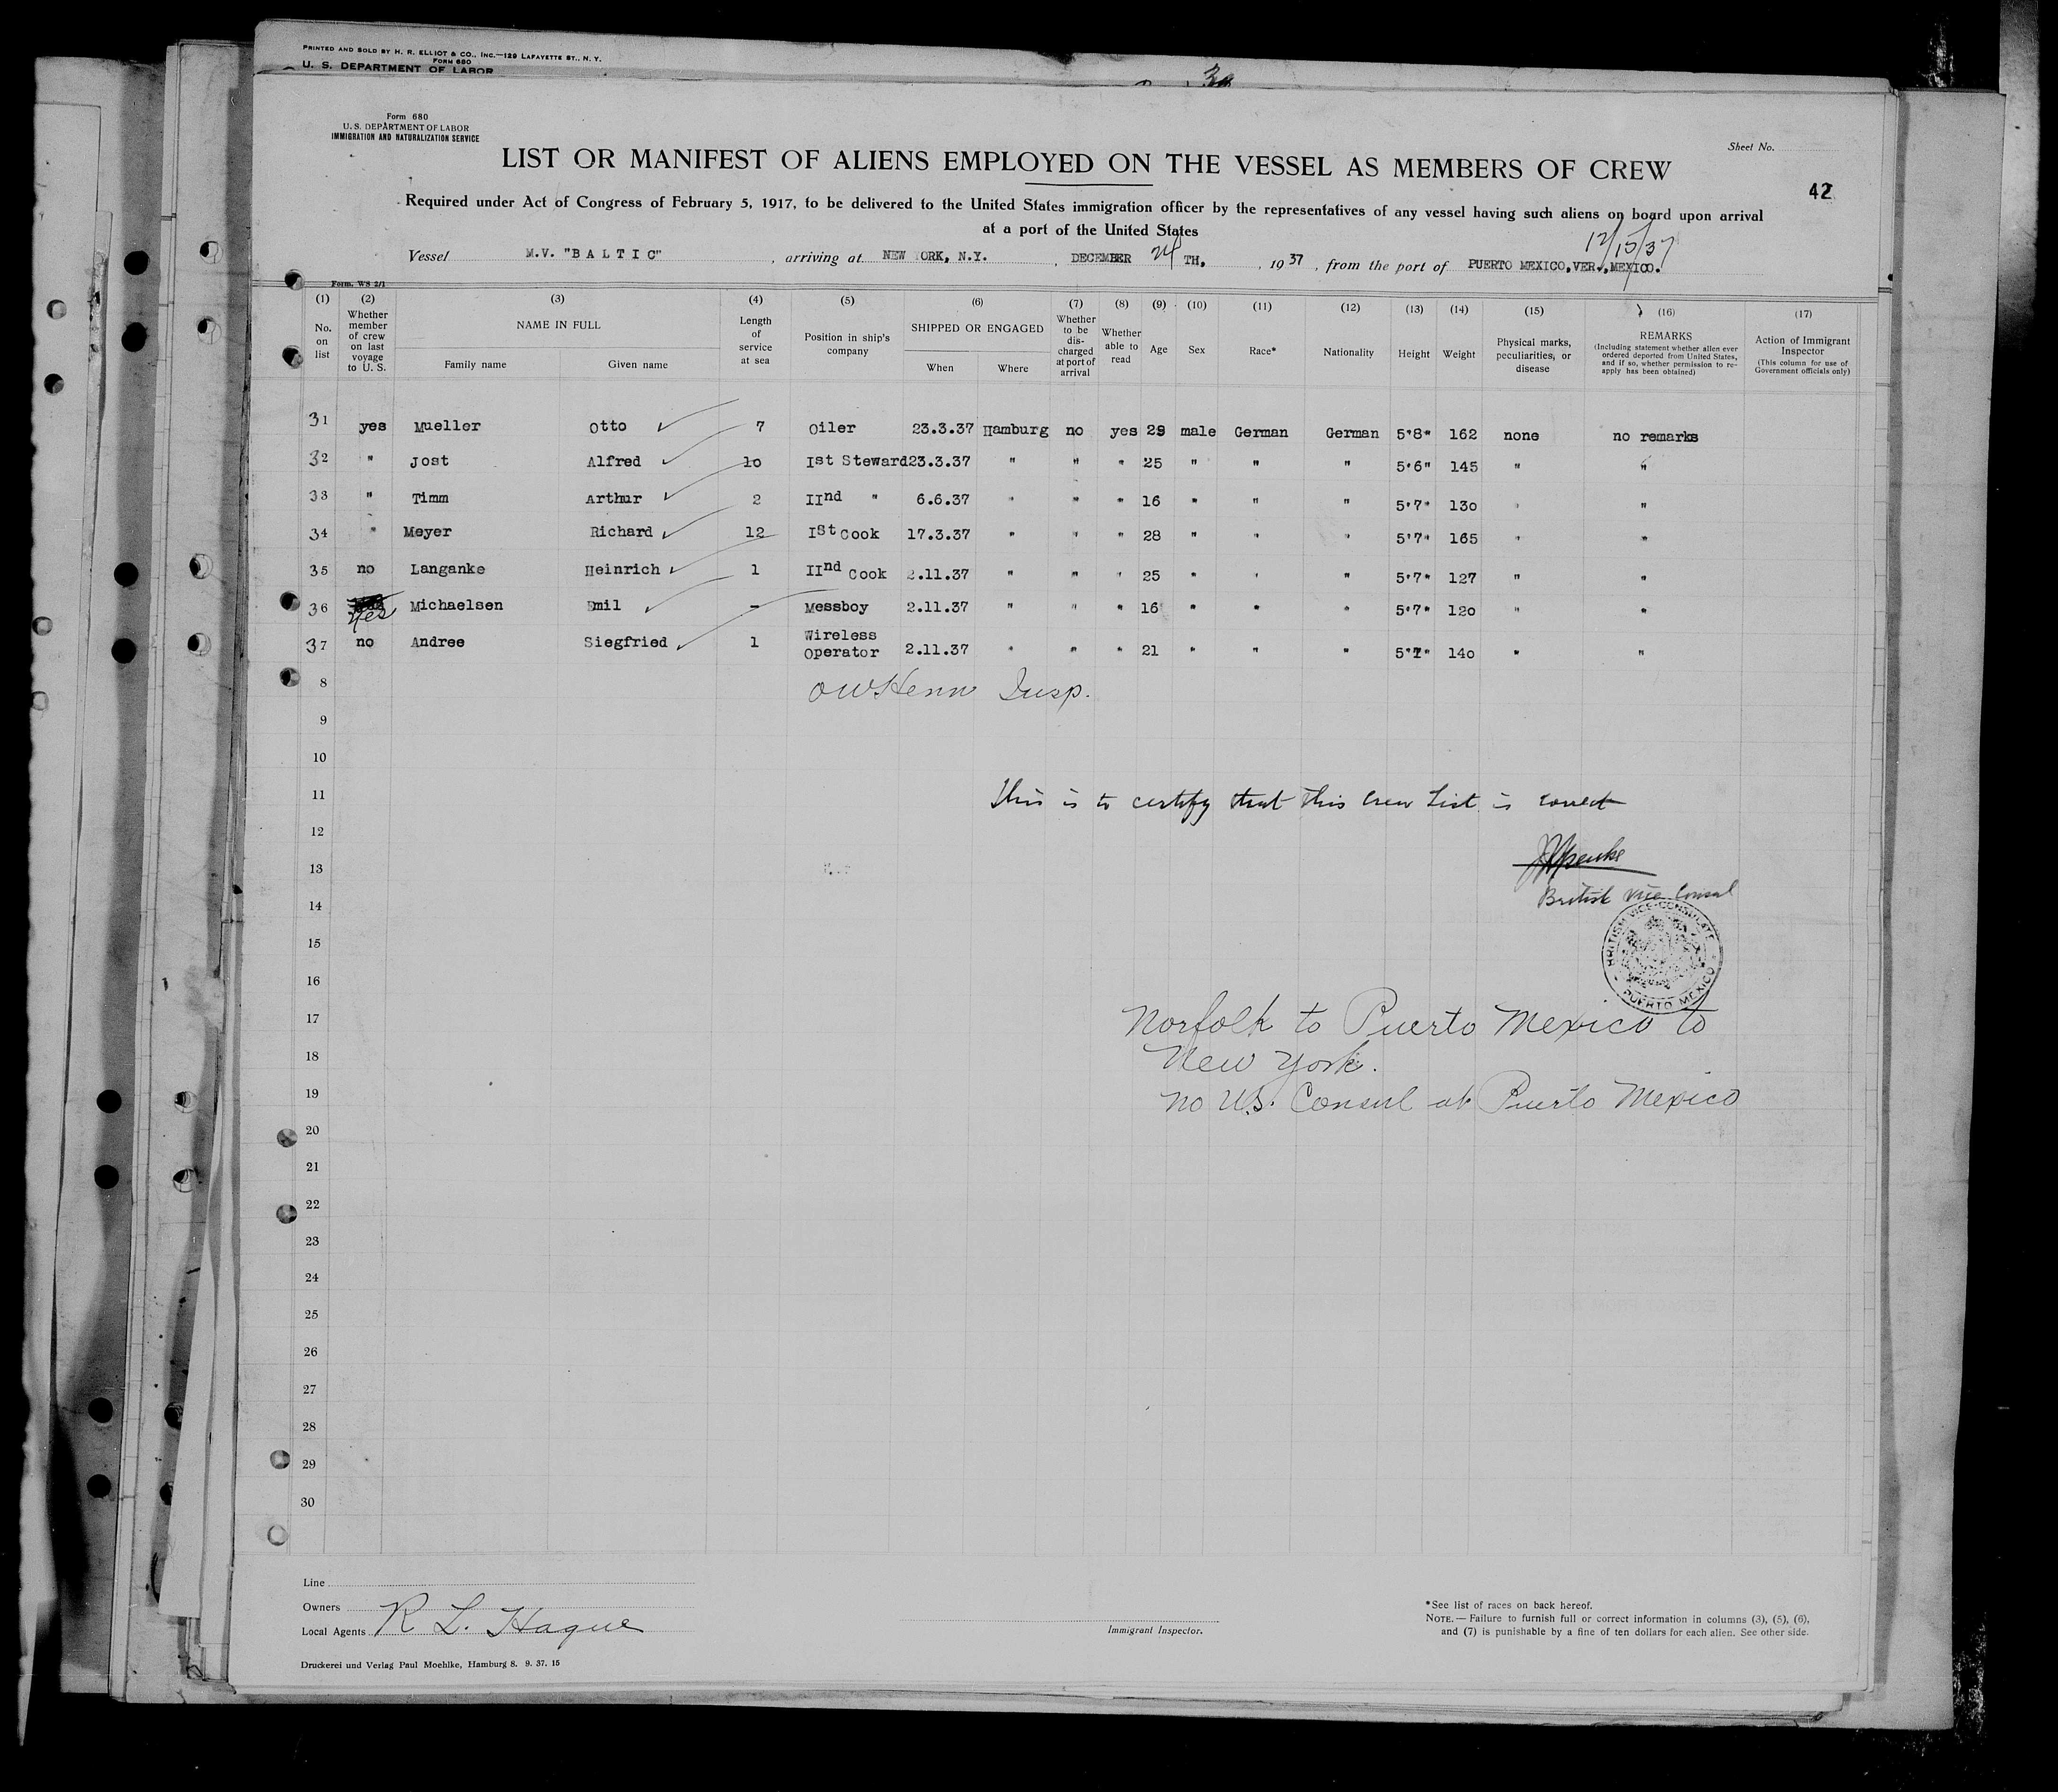 PRINTED AND SOLD BY H. R. ELLIOT & CO., INC.—129 LAFAYETTE ST., N. Y.
FORM 680
U. S. DEPARTMENT OF LABOR
Form 680
U. S. DEPARTMENT OF LABOR
IMMIGRATION AND NATURALIZATION SERVICE
Sheet No.
LIST OR MANIFEST OF ALIENS EMPLOYED ON THE VESSEL AS MEMBERS OF CREW
42
Required under Act of Congress of February 5, 1917, to be delivered to the United States immigration officer by the representatives of any vessel having such aliens on board upon arrival
at a port of the United States
12/15/37
Vessel M.V. "BALTIC", arriving at NEW ORK, N.Y., DECEMBER TH, 1937, from the port of PUERTO MEXICO, VER., MEXICO.
Form. WS 2/1
(1) (2) (3) (4) (5) (6) (7) (8) (9) (10) (11) (12) (13) (14) (15) (16) (17)
No. on list
Whether member of crew on last voyage to U. S.
NAME IN FULL
Family name Given name
Length of service at sea
Position in ship's company
SHIPPED OR ENGAGED
When Where
Whether to be discharged at port of arrival
Whether able to read
Age Sex Race* Nationality Height Weight
Physical marks, peculiarities, or disease
REMARKS
(Including statement whether alien ever ordered deported from United States, and if so, whether permission to reapply has been obtained)
Action of Immigrant Inspector
(This column for use of Government officials only)
31 yes Mueller Otto 7 Oiler 23.3.37 Hamburg no yes 29 male German German 5'8" 162 none no remarks
32 " Jost Alfred 10 Ist Steward 23.3.37 " " " 25 " " " 5'6" 145 " "
33 " Timm Arthur 2 IInd " 6.6.37 " " " 16 " " " 5'7" 130 " "
34 " Meyer Richard 12 Ist Cook 17.3.37 " " " 28 " " " 5'7" 165 " "
35 no Langanke Heinrich 1 IInd Cook 2.11.37 " " " 25 " " " 5'7" 127 " "
36 yes Michaelsen Emil - Messboy 2.11.37 " " " 16 " " " 5'7" 120 " "
37 no Andree Siegfried 1 Wireless Operator 2.11.37 " " " 21 " " " 5'7" 140 " "
8 OWHenn Insp.
9
10
11 This is to certify that this Crew List is correct
12
13
14 British Vice Consul
BRITISH VICE-CONSULATE
PUERTO MEXICO
15
16
17 Norfolk to Puerto Mexico to
18 New York.
19 No U.S. Consul at Puerto Mexico
20
21
22
23
24
25
26
27
28
29
30
Line
Owners
Local Agents R L. Hague
Immigrant Inspector.
*See list of races on back hereof.
NOTE.—Failure to furnish full or correct information in columns (3), (5), (6),
and (7) is punishable by a fine of ten dollars for each alien. See other side.
Druckerei und Verlag Paul Moehlke, Hamburg 8. 9. 37. 15